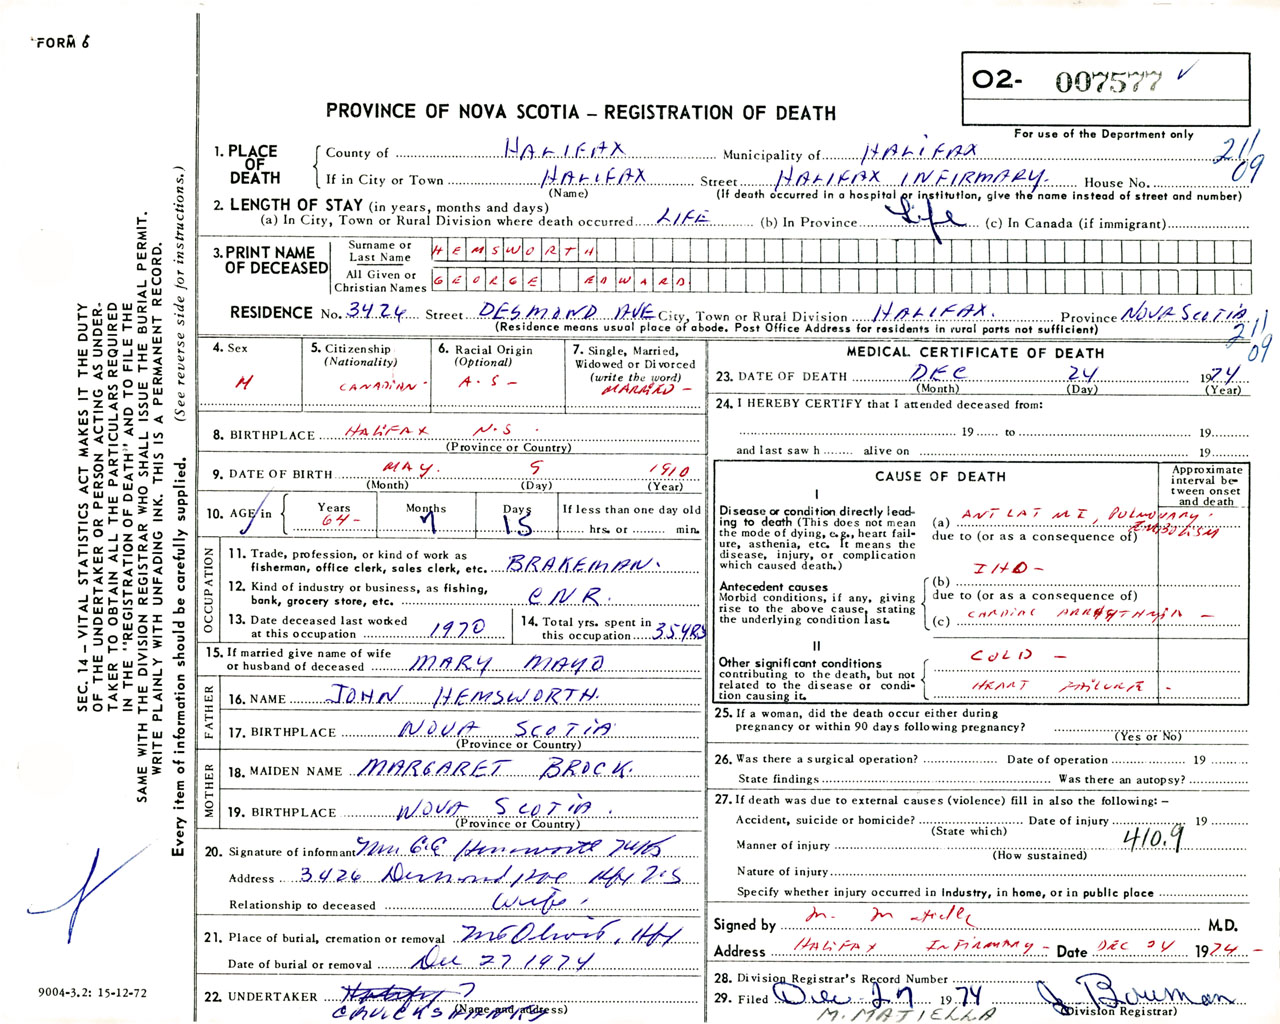 FORM 6
02- 007577 ✓
For use of the Department only
PROVINCE OF NOVA SCOTIA – REGISTRATION OF DEATH
211
09
1. PLACE OF DEATH
County of HALIFAX Municipality of HALIFAX
If in City or Town HALIFAX Street HALIFAX INFIRMARY. House No.
(Name) (If death occurred in a hospital or institution, give the name instead of street and number)
2. LENGTH OF STAY (in years, months and days)
(a) In City, Town or Rural Division where death occurred LIFE (b) In Province Life (c) In Canada (if immigrant)
3. PRINT NAME OF DECEASED
Surname or Last Name HEMSWORTH
All Given or Christian Names GEORGE EDWARD
RESIDENCE No. 3426 Street DESMOND AVE City, Town or Rural Division HALIFAX. Province NOVA SCOTIA
(Residence means usual place of abode. Post Office Address for residents in rural parts not sufficient)
211
09
4. Sex
M
5. Citizenship
(Nationality)
CANADIAN-
6. Racial Origin
(Optional)
A.S-
7. Single, Married,
Widowed or Divorced
(write the word)
MARRIED-
8. BIRTHPLACE HALIFAX N.S.
(Province or Country)
9. DATE OF BIRTH MAY. 9 1910
(Month) (Day) (Year)
10. AGE in
Years
64-
Months
7
Days
15
If less than one day old
hrs. or min.
OCCUPATION
11. Trade, profession, or kind of work as
fisherman, office clerk, sales clerk, etc. BRAKEMAN.
12. Kind of industry or business, as fishing,
bank, grocery store, etc. C.N.R.
13. Date deceased last worked
at this occupation 1970
14. Total yrs. spent in
this occupation 35 YRS
15. If married give name of wife
or husband of deceased MARY MAYO
FATHER
16. NAME JOHN HEMSWORTH.
17. BIRTHPLACE NOVA SCOTIA
(Province or Country)
MOTHER
18. MAIDEN NAME MARGARET BROCK.
19. BIRTHPLACE NOVA SCOTIA.
(Province or Country)
20. Signature of informant Mrs G E Hemsworth
Address 3426 Desmond Ave Hfx N.S
Relationship to deceased Wife.
21. Place of burial, cremation or removal Mt Olivet, Hfx
Date of burial or removal Dec 27 1974
22. UNDERTAKER
(Name and address)
CRUICKSHANKS
MEDICAL CERTIFICATE OF DEATH
23. DATE OF DEATH DEC 24 1974
(Month) (Day) (Year)
24. I HEREBY CERTIFY that I attended deceased from:
19 to 19
and last saw h alive on 19
CAUSE OF DEATH
Approximate interval between onset and death
I
Disease or condition directly lead-
ing to death (This does not mean
the mode of dying, e.g., heart fail-
ure, asthenia, etc. It means the
disease, injury, or complication
which caused death.)
(a) ANT LAT M I, PULMONARY. EMBOLISM
due to (or as a consequence of)
IHD-
Antecedent causes
Morbid conditions, if any, giving
rise to the above cause, stating
the underlying condition last.
(b)
due to (or as a consequence of)
(c) CARDIAC ARRHYTHMIA –
II
Other significant conditions
contributing to the death, but not
related to the disease or condi-
tion causing it.
COLD –
HEART FAILURE -
25. If a woman, did the death occur either during
pregnancy or within 90 days following pregnancy?
(Yes or No)
26. Was there a surgical operation? Date of operation 19
State findings Was there an autopsy?
27. If death was due to external causes (violence) fill in also the following: –
Accident, suicide or homicide? Date of injury 19
(State which)
410.9
Manner of injury
(How sustained)
Nature of injury
Specify whether injury occurred in Industry, in home, or in public place
Signed by M. Matiella M.D.
Address HALIFAX INFIRMARY- Date DEC 24 1974-
28. Division Registrar's Record Number
29. Filed Dec 27 1974 J Bowman
(Division Registrar)
M. MATIELLA
SEC. 14 – VITAL STATISTICS ACT MAKES IT THE DUTY
OF THE UNDERTAKER OR PERSON ACTING AS UNDER-
TAKER TO OBTAIN ALL THE PARTICULARS REQUIRED
IN THE "REGISTRATION OF DEATH" AND TO FILE THE
SAME WITH THE DIVISION REGISTRAR WHO SHALL ISSUE THE BURIAL PERMIT.
WRITE PLAINLY WITH UNFADING INK. THIS IS A PERMANENT RECORD.
Every item of information should be carefully supplied. (See reverse side for instructions.)
9004-3.2: 15-12-72